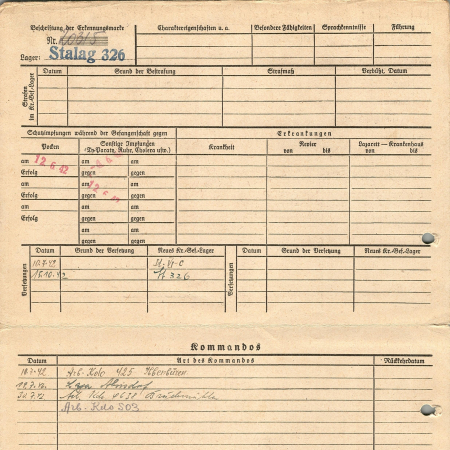 Beschriftung der Erkennungsmarke
Charaktereigenschaften u. a.
Besondere Fähigkeiten
Sprachkenntnisse
Führung
Nr.
Lager: Stalag 326
Strafen im Kr.-Gef.-Lager
Datum
Grund der Bestrafung
Strafmaß
Verbüßt, Datum
Schutzimpfungen während der Gefangenschaft gegen
Erkrankungen
Pocken
Sonstige Impfungen
(Ty-Paraty, Ruhr, Cholera usw.)
Krankheit
Revier
von — bis
Lazarett — Krankenhaus
von — bis
am 12.6.42 am am
Erfolg gegen gegen
am am am
Erfolg gegen gegen
am am am
Erfolg gegen gegen
am am
gegen gegen
Versetzungen
Datum
Grund der Versetzung
Neues Kr.-Gef.-Lager
Versetzungen
Datum
Grund der Versetzung
Neues Kr.-Gef.-Lager
10.7.42
15.10.42 326
Kommandos
Datum
Art des Kommandos
Rückkehrdatum
Arb. Kdo 425
Arb. Kdo 503